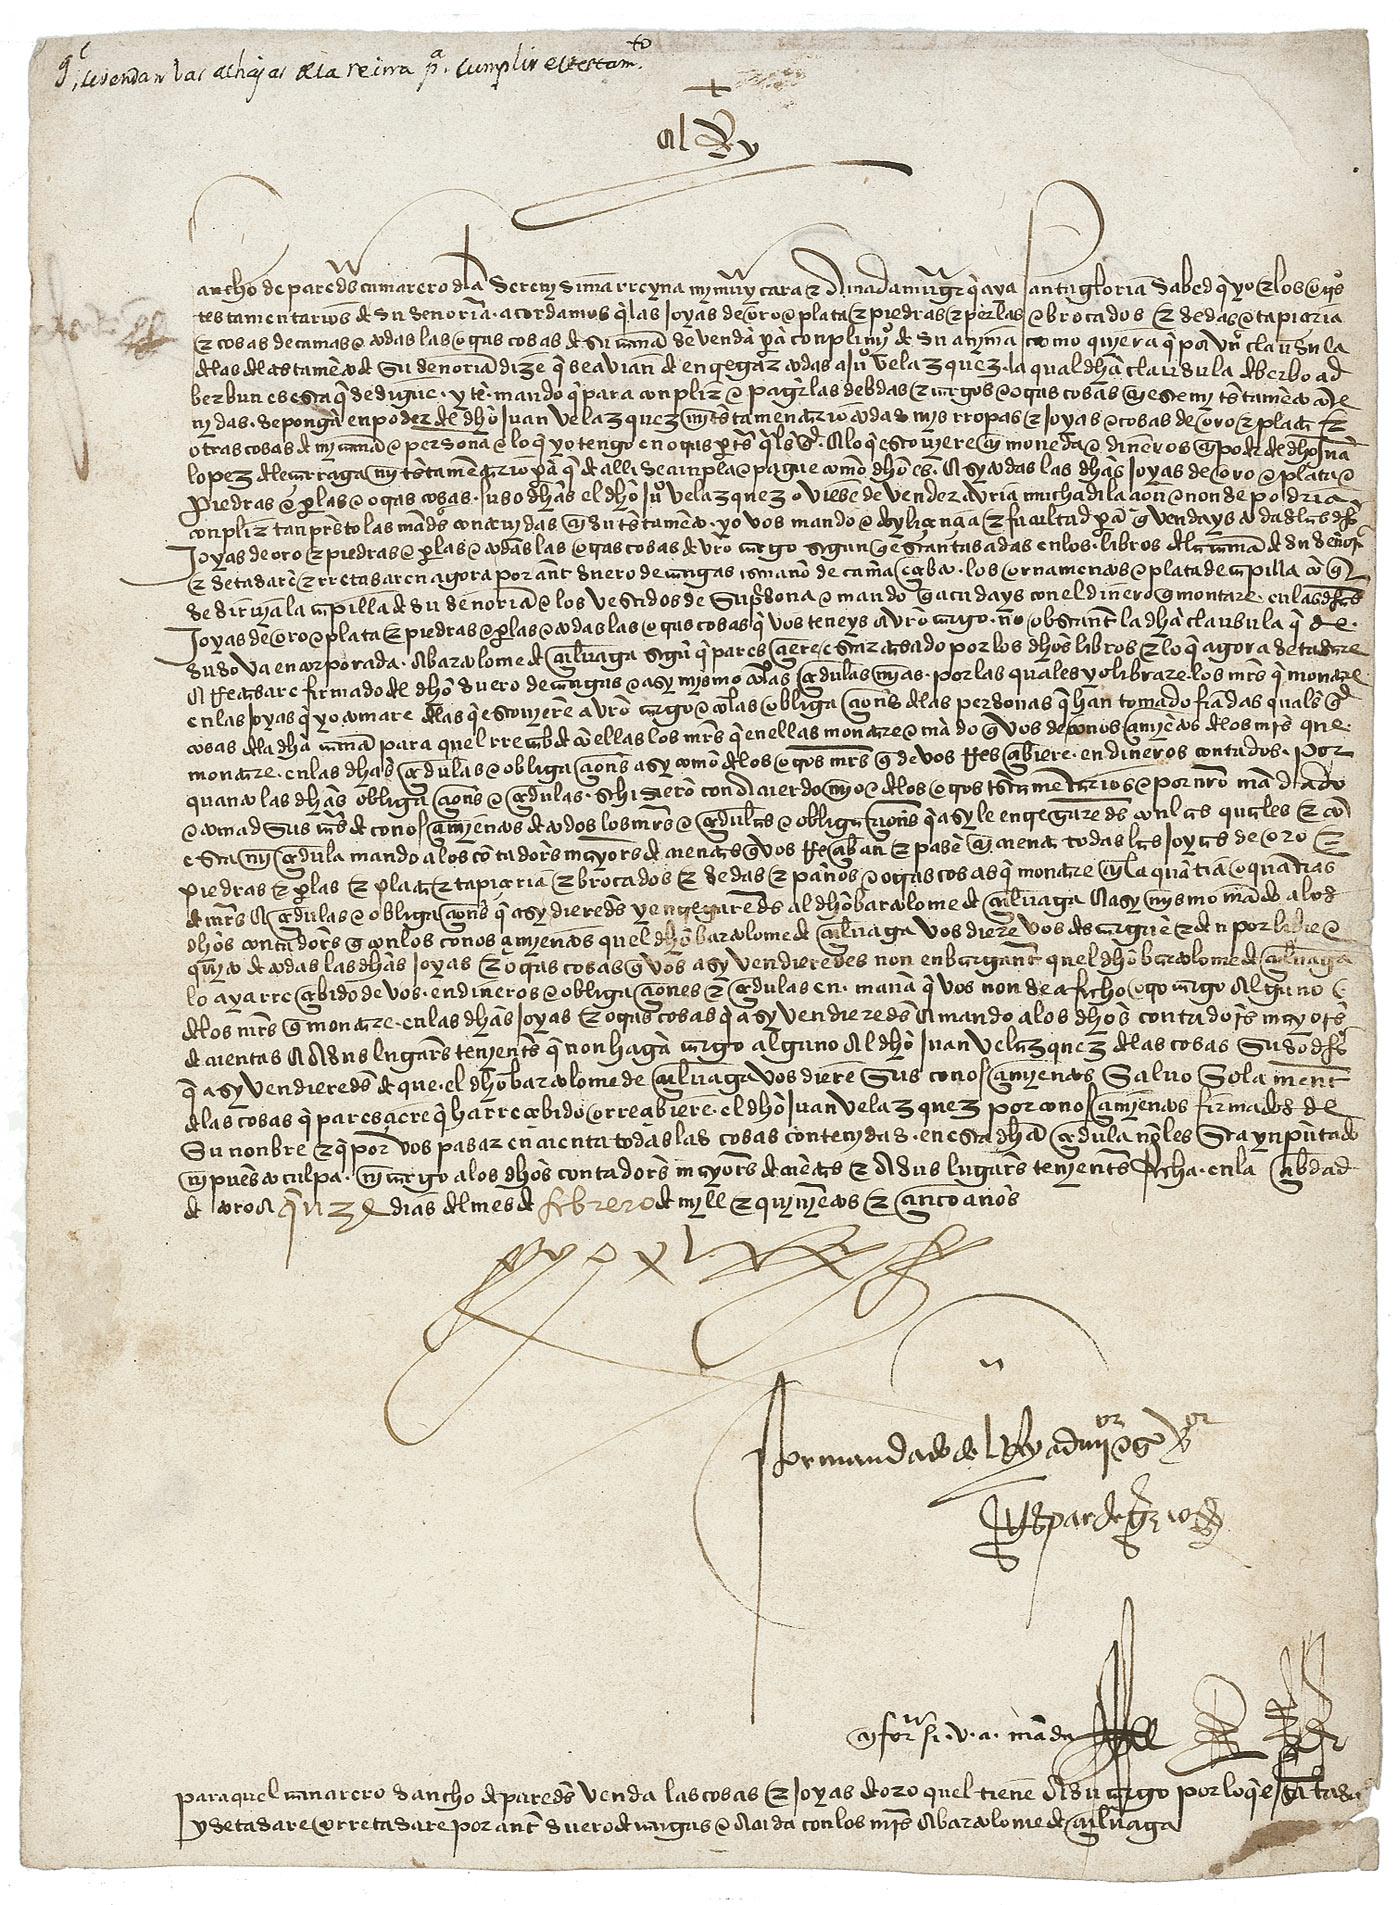 q̃ se vendan las alhajas de la reina pᵃ. cumplir el testamᵗᵒ.
+
El Rey
Sancho de paredes camarero dela Serenysima rreyna my muy cara & Amada muger q̃ aya santa gloria Sabed q̃ yo & los otros
testamentarios de su señoria acordamos q̃ las Joyas de oro e plata & piedras & perlas e brocados & sedas e tapiçeria
& cosas de camas e todas las otras cosas de su camara se vendã para conplimyº de su anyma como quiera q̃ por vna clausula
delas del testamẽto de Su señoria dize q̃ se avian de entregar todas a juº velazquez. la qual dha clausula de berbo ad
berbun es esta q̃ se sigue. yten mando q̃ para conplir e pagar las debdas & cargos e otras cosas en este my testamẽto conte
nydas. se pongã en poder del dho Juan velazquez my testamentario todas mys rropas & joyas e cosas de oro & plata &
otras cosas de my camara e persona e lo q̃ yo tengo en otras partes. Alo q̃ estouyere en moneda e dineros en poder del dho juã
lopez de leçarraga my testamẽtario para q̃ de alli se cunpla e pague como dho es. E sy todas las dhas Joyas de oro e plata e
piedras e perlas e otras cosas. suso dhas el dho juº velazquez oviese de vender avria mucha dilaçion e non se podria
conplir tan presto las mãdas contenydas en su testamẽto. yo vos mando e doy liçençia & facultad para q̃ vendays todas las dhas
Joyas de oro & piedras e perlas e todas las otras cosas de vro cargo segun q̃ estan tasadas en los libros dela camara de su señoria
& se tasarẽ & rretasaren agora por ante suero de cangas escriuano de camara eçebto. los ornamentos e plata de capilla con q̃
se diruya la capilla de su señoria e los vestidos de Su persona e mando q̃ acudays con el dinero q̃ montare. en las dhas
Joyas de oro e plata & piedras e perlas e todas las otras cosas q̃ vos teneys a vro cargo. no obstante la dha clausula q̃ de
suso va encorporada. A bartolome de çuluaga segũ q̃ paresçiere estar tasado por los dhos libros & lo q̃ agora se tasare
o rretasare firmado del dho suero de cangas e asy mysmo las çedulas myas. por las quales yo librare los mrs q̃ montare
en las joyas q̃ yo tomare delas q̃ estouyere a vro cargo e las obligaçiones delas personas q̃ han tomado fiadas quales q̃r
cosas dela dha camara para quel rreçiba en ellas los mrs q̃ en ellas montare e mãdo q̃ vos de conosçimyẽtos delos mrs que
montare. en las dhas çedulas e obligaçiones asy como delos otros mrs q̃ de vos rresçibiere. en dineros contados. Por
quanto las dhas obligaçiones e çedulas. se hizierõ con Acuerdo myo e delos otros testamentarios e por nro mãdado
e tomad Sus cartas de conosçimyentos de todos los mrs e çedulas e obligaçiones q̃ asy le entregaredes con las quales & con
esta my çedula mando a los cõtadores mayores de cuentas q̃ vos rresçiban & pasẽ en cuenta todas las joyas de oro &
piedras & perlas & plata & tapiçeria & brocados & sedas & paños e otras cosas q̃ montare en la quãtia o quantias
de mrs o çedulas e obligaçiones q̃ asy dieredes y entregaredes al dho bartolome de çuluaga E asy mysmo mãdo a los
dhos contadores q̃ con los conosçimyentos quel dho bartolome de çuluaga vos diere vos descarguẽ & den por libre e
quyto de todas las dhas joyas & otras cosas q̃ vos asy vendieredes non enbargante quel dho bartolome de çuluaga
lo aya rreçebido de vos. en dineros e obligaçiones & çedulas en. manera q̃ vos non sea fecho otro cargo Alguno
delos mrs q̃ montare. en las dhas joyas & otras cosas q̃ asy vendieredes E mando a los dhos contadores mayores
de cuentas e A sus lugares tenyentes q̃ non hagã cargo alguno Al dho Juan velazquez delas cosas Suso dhas
q̃ asy vendieredes de que. el dho bartolome de çuluaga vos diere Sus conosçimyentos Salvo Solamente
delas cosas q̃ paresçiere q̃ ha rreçebido o rreçibiere. el dho juan velazquez por conosçimyentos firmados de
Su nonbre & q̃ por vos pasar en cuenta todas las cosas contenydas. en esta dha çedula nõ les Sea ynputado
ny puesto culpa. ny cargo a los dhos contadores mayores de cuẽtas & A sus lugares tenyentes fecha. en la çibdad
de toro A quinze dias del mes de febrero de myll & quinyentos & çinco años
Por mandado del Rey admor e gor
Gaspar de grizio
en forma si. v. a. manda
para quel camarero sancho de paredes venda las cosas & joyas de oro quel tiene A su cargo por lo q̃ esta tasado
y se tasare o rretasare por ante suero de cangas e acuda con los mrs A bartolome de çuluaga